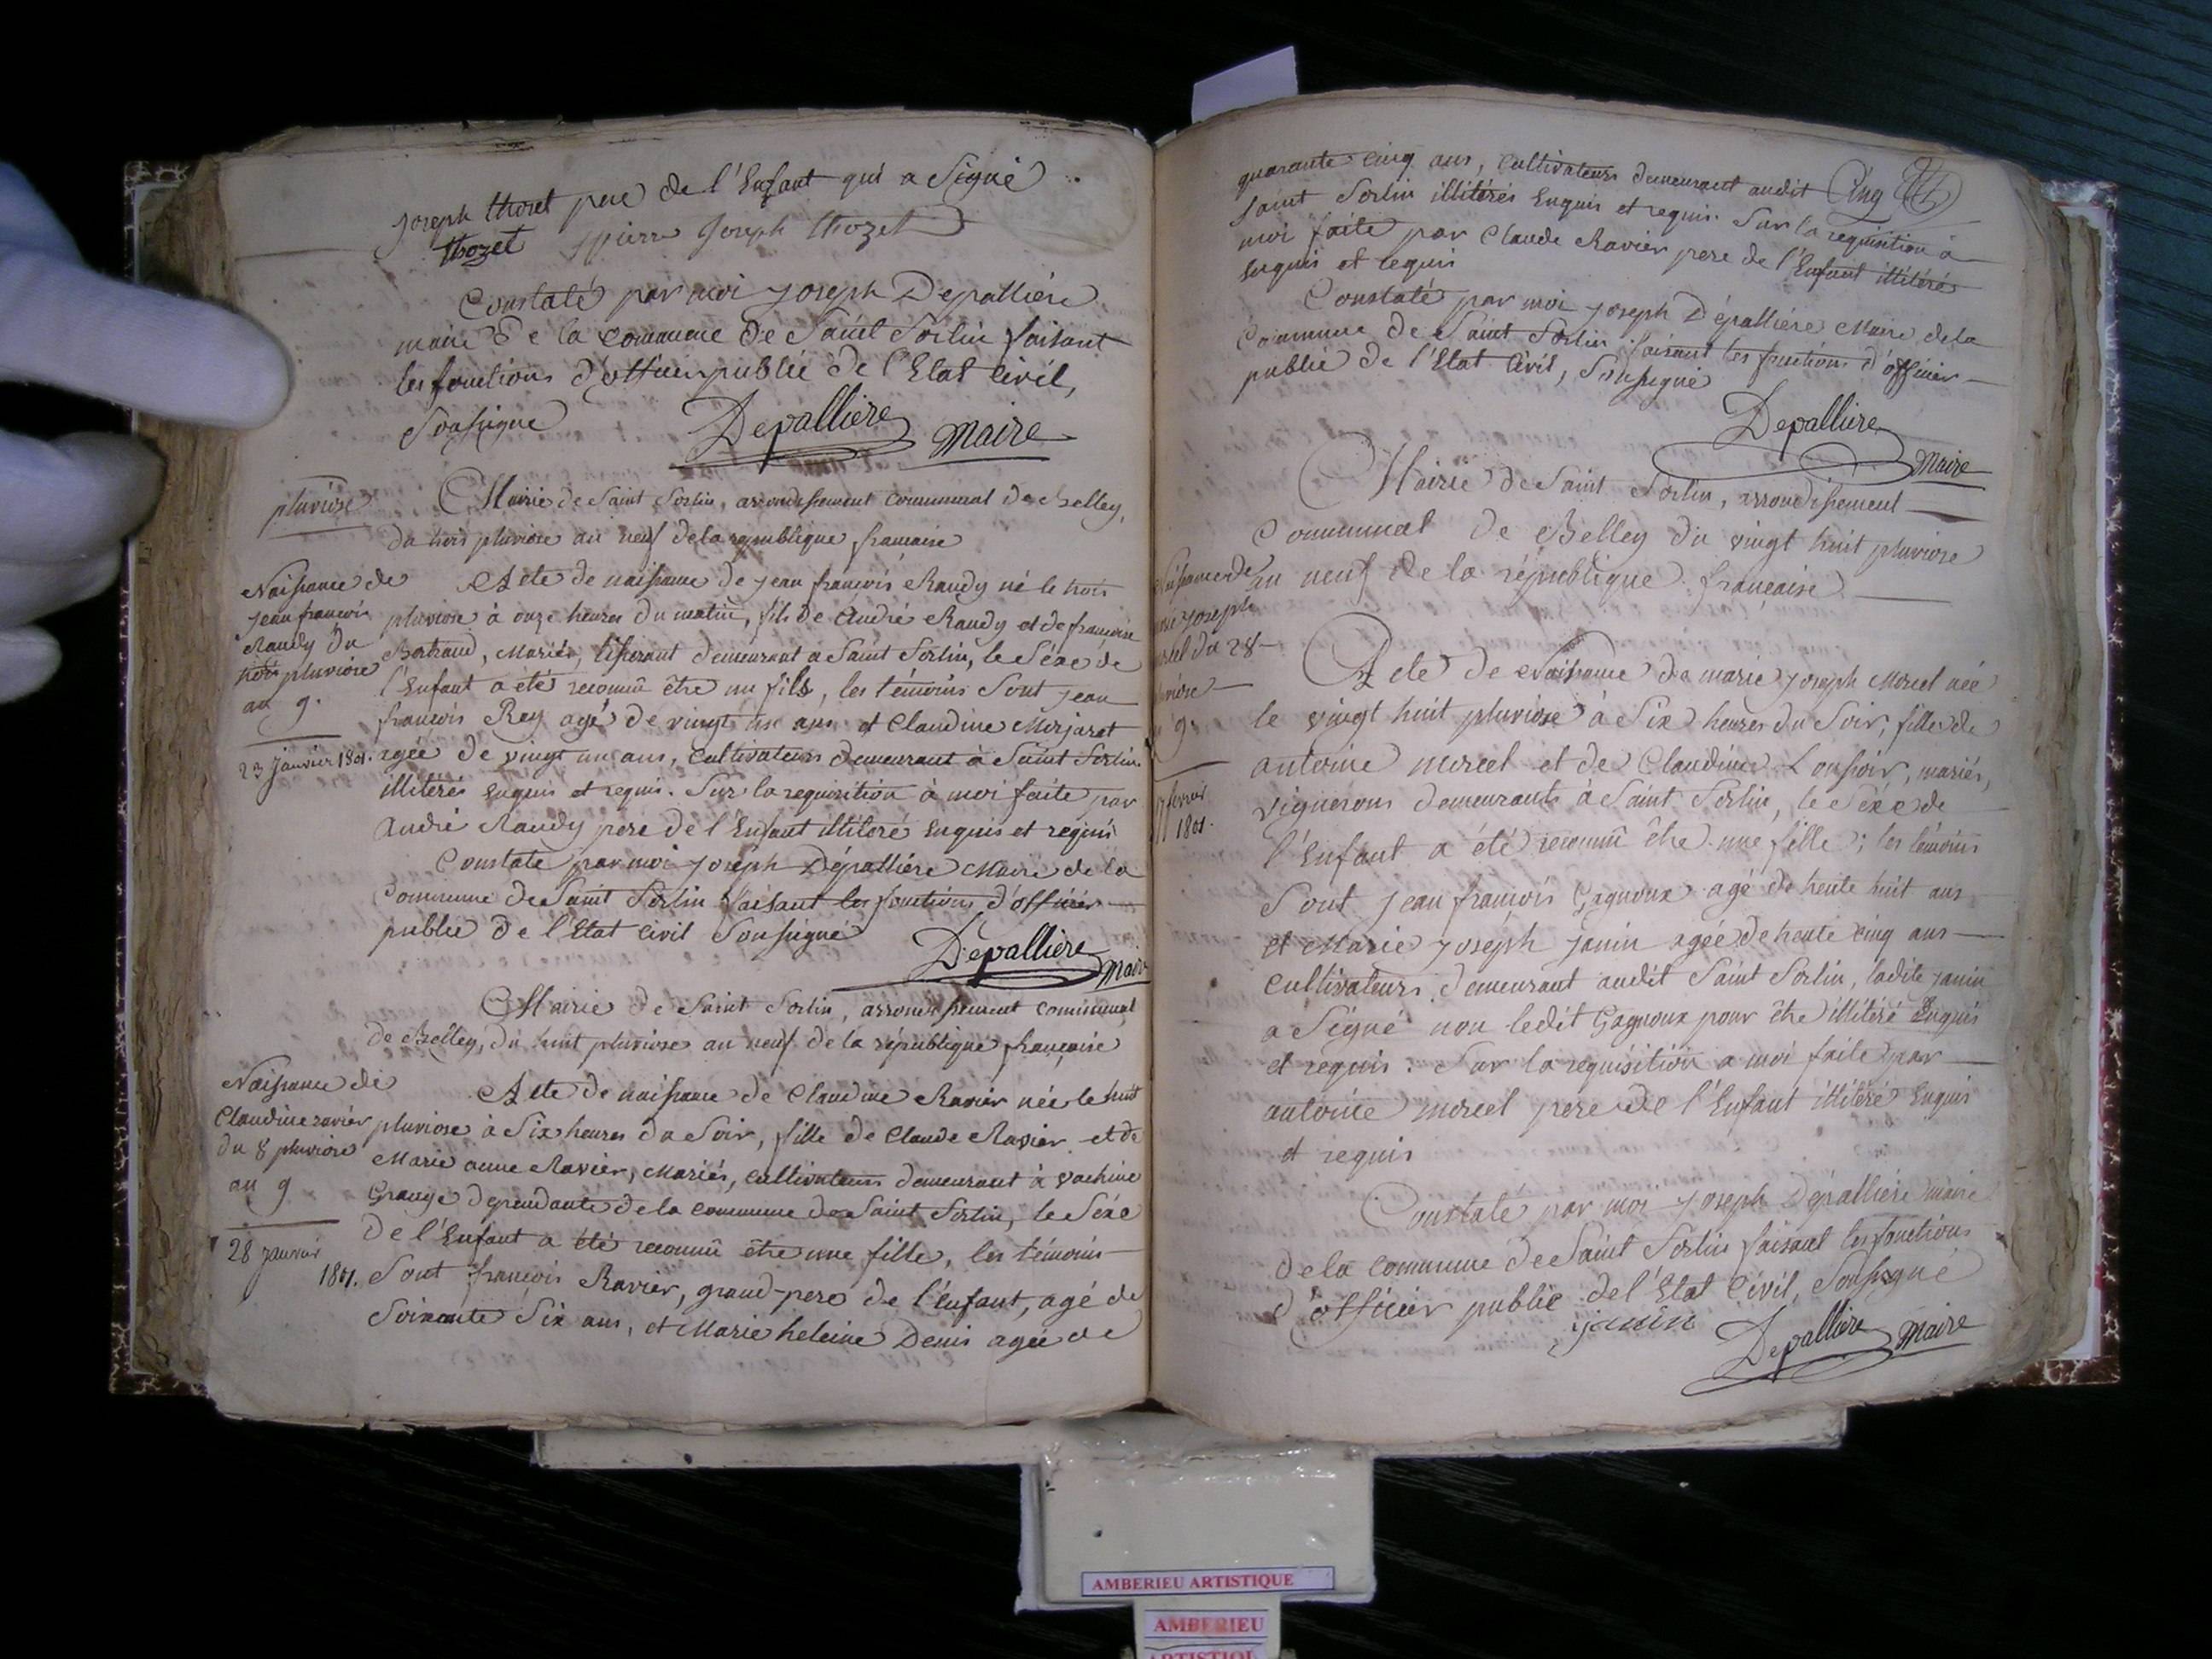 Joseph thozet pere de l'Enfant qui a Signé
thozet pierre Joseph thozet
Constaté par moi joseph Depalliére
maire de la commune de Saint Sorlin faisant
les fonctions d'officier public de l'Etat Civil,
Soussigné
Depalliere maire
pluviose
Mairie de Saint Sorlin, arrondissement communal de Belley,
du trois pluviose an neuf de la republique francaise
Naissance de
jean francois
Raudy du
trois pluviose
an 9.
23 janvier 1801.
Acte de naissance de jean françois Raudy né le trois
pluviose à onze heures du matin, fils de André Raudy et de francoise
Bertrand, Mariés, demeurant à Saint Sorlin, le Séxe de
l'Enfant a été reconnû être un fils, les témoins Sont jean
francois Rey agé de vingt un ans et Claudine Morjarat
agée de vingt un ans, Cultivateurs demeurant à Saint Sorlin
illitérés Enquis et requis. Sur la requisition à moi faite par
André Raudy pere de l'Enfant illitéré Enquis et requis
Constaté par moi joseph Dépalliére Maire de la
Commune de Saint Sorlin faisant les fonctions d'officier
public de l'Etat Civil Soussigné
Depalliere maire
Mairie de Saint Sorlin, arrondissement communal
de Belley, du huit pluviose an neuf de la république française
Naissance de
Claudine ravier
du 8 pluviose
an 9
28 janvier
1801.
Acte de naissance de Claudine Ravier née le huit
pluviose à Six heures du Soir, fille de Claude Ravier et de
Marie anne Ravier, Mariés, cultivateurs demeurant à vachine
Grange dependante de la commune de Saint Sorlin, le Séxe
de l'Enfant a été reconnû être une fille, les témoins
Sont françois Ravier, grand-pere de l'Enfant, agé de
Soixante Six ans, et Marie heleine Denis agée de
quarante cinq ans, cultivateurs demeurant audit
Cinq
Saint Sorlin illitérés Enquis et requis. Sur la requisition à
moi faite par Claude Ravier pere de l'Enfant illitéré
Enquis et requis
Constaté par moi joseph Dépalliére Maire de la
Commune de Saint Sorlin faisant les fonctions d'officier
public de l'Etat Civil, Soussigné
Depalliere
maire
Mairie de Saint Sorlin, arrondissement
Communal de Belley du vingt huit pluviose
an neuf de la république française
Naissance de
joseph
du 28
9.
fevrier
1801.
Acte de Naissance de marie joseph Morel née
le vingt huit pluviose à Six heures du Soir, fille de
antoine morel et de Claudine, mariés,
vignerons demeurants à Saint Sorlin, le Séxe de
l'Enfant a été reconnû être une fille; les témoins
Sont jean françois Gagnoux agé de trente huit ans
et Marie joseph janin agée de trente cinq ans
cultivateurs demeurant audit Saint Sorlin, ladite janin
a Signé non ledit Gagnoux pour être illitéré Enquis
et requis. Sur la requisition a moi faite par
antoine morel pere de l'Enfant illitéré Enquis
et requis
Constaté par moi joseph Dépalliére maire
de la commune de Saint Sorlin faisant les fonctions
d'officier public de l'Etat Civil, Soussigné
janin
Depalliere maire
AMBERIEU ARTISTIQUE
AMBERIEU
ARTISTIQUE